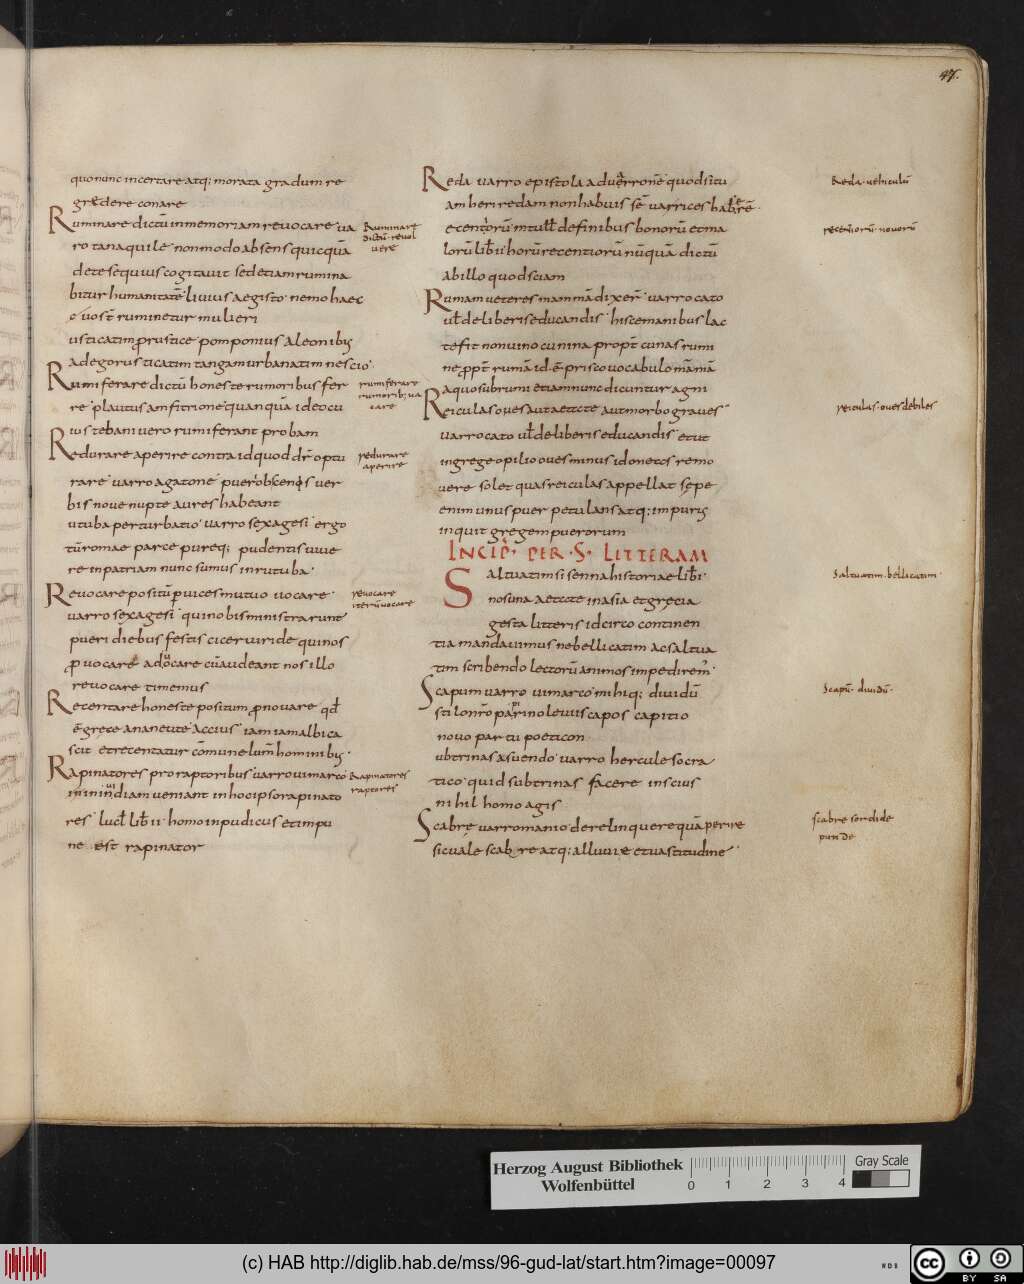 47.
quo nunc incertare atq; morata gradum re
gredere conare
Ruminare dictū in memoriam revocare va
ro tanaquile non modo absens quicquā
de te sequius cogitavit sed etiam rumina
bitur humanitatē livius aegisto nemo haec
ruminetur mulieri
usticatim prustice pomponius aleonib;
adegorusticatim tangam urbanatim nescio
Rumiferare dictū honeste rumoribus fer
re plautus amfitrione quanquā ideo cu
ius tebani vero rumiferant probam
Redurare aperire contra id quod dr̄ optu
rare varro agatone puer obscenis ver
bis nove nupte aures habeant
ututuba perturbatio varro sexagesi ergo
tū romae parce pureq; pudentis vive
re in patriam nunc sumus in rutuba
Revocare positū p̄ vices mutuo vocare
varro sexagesi quin obis ministrarune
pueri diebus festis cicer viride quinos
provocare adocare cū audeant nos illo
revocare timemus
Recentare honeste positum pro novare qd̄
ē grece ananeute Accius iam iam albica
scit et recentatur cōmune lum̄ hominib;
Rapinatores pro raptoribus varro vimarco
in indiam veniant in hoc ipso rapinato
res lucl̄ lib̄ ii homo inpudicus et inpu
ne est rapinator
Ruminare
dictū revo
vere
rumiferare
rumorib; va
care
redurare
aperire
revocare
iterū vocare
Rapinatores
raptores
Reda varro epistola adverronē quod situ
amberi redam non habuis sē varrices habere
ecentiorū m tull̄ de finibus bonorū et ma
lorū lib̄ ii horū recentiorū nūquā dictū
ab illo quod sciam
Rumam veteres mammā dixer̄ varro cato
vl̄ de liberis educandis hisce manibus lac
te fit non vino cunina propt̄ cunas rumi
ne ppt̄ rumā id ē prisco vocabulo māmā
a quo subrumi etiam nunc dicuntur agni
Reiculas oves aut aetate aut morbo graves
varro cato vl̄ de liberis educandis et ut
in grege opilio oves minus idoneas remo
vere solet quas reiculas appellat sepe
enim unus puer petulans atq; impurus
inquit gregem puerorum
INCIP̄ PER S LITTERAM
Saltuatim sisenna historiae lib̄ i
nos una aetate in asia et grecia
gesta litteris idcirco continen
tia mandavimus ne bellicatim ac saltua
tim scribendo lectorū animos impedirem̄
Scapum varro vimarco mihiq; dividū
stilonr̄o parino levi scapos capitio
novo partu poeticon
ubtrinas asuendo varro hercule socra
tico quid subtrinas facere inscius
nihil homo agis
Scabre varro manio derelinquere quā perire
sic vale scabre atq; alluvie et vastitudine
Reda vehiculū
recetiorū novorū
reiculas oves debiles
Saltuatim bellicatim
Scapū dividū
scabre sordide
Herzog August Bibliothek
Wolfenbüttel
0 1 2 3 4
Gray Scale
(c) HAB http://diglib.hab.de/mss/96-gud-lat/start.htm?image=00097
WDB
cc BY SA